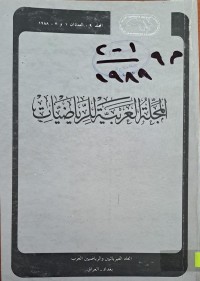 المجلد ٩ - العددان ١ و ٢ - ١٩٨٨
م ٩
١-٢
١٩٨٩
المجلة العربية للرياضيات
اتحاد الفيزيائيين والرياضيين العرب
بغداد - العراق